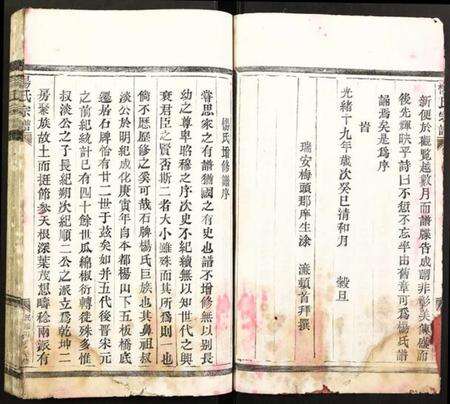 新便於觀覽越數月而譜牒告成嗣非彰美傳盛而
後先輝映乎詩曰不愆不忘率由舊章可為楊氏譜
誦焉矣是為序
皆
光緒十九年歲次癸巳清和月 穀旦
瑞安梅頭那庠生涂 濂頓首拜撰
楊氏增修譜序
嘗思家之有譜猶國之有史也譜不增修無以別長
幼之尊卑昭穆之序次史不紀續無以知世代之興
衰君臣之賢否斯二者大小雖殊而其所為則一也
倘不歷歷修之奚可哉石牌楊氏巨族也其鼻祖叔
淡公於明紀成化庚寅年自本都楊山下五板橋底
遷居石牌恰有廿二世于茲矣如并五代後晉宋元
之前紀統計已有四十餘世瓜綿椒衍轉徙殊多惟
叔淡公之子長紀朔次紀順二公之派立為乾坤二
房聚族故土而挺節參天根深葉茂思疇稔兩派有
楊氏宗譜